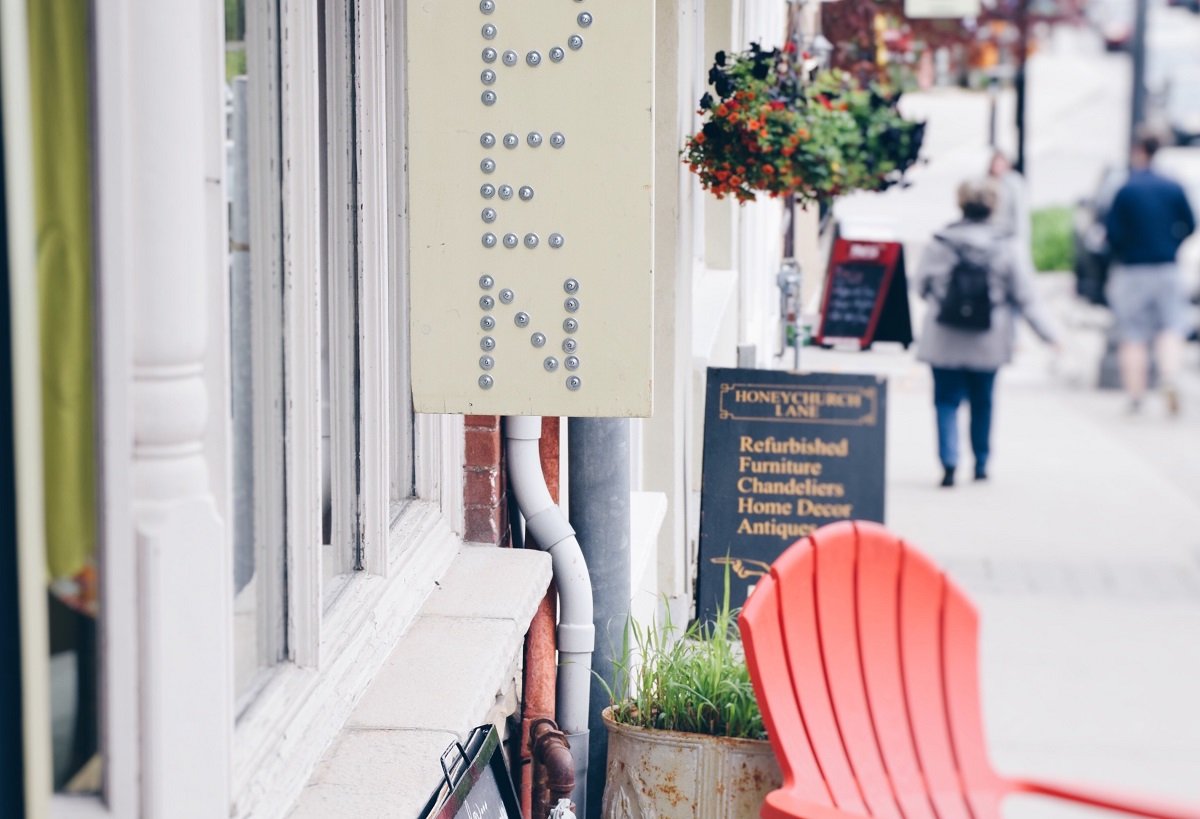 P
E
N
HONEYCHURCH
LANE
Refurbished
Furniture
Chandeliers
Home Decor
Antiques